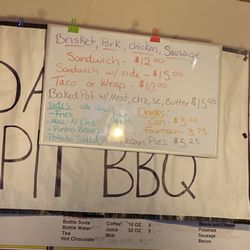 Brisket, Pork, Chicken, Sausage
Sandwich - $12.00
Sandwich w/ side - $15.00
Taco or Wrap - $10.00
Baked Pot w/ Meat, chz, sc, Butter $15.95
Sides
Drinks:
-Fries
Can - $3.00
-Mac-N-Chz
Fountain - 3.75
-Pinto Beans
-Potato Salad
Pecan Pies $5.25
PIT BBQ
Bottle Soda
Coffee 16 OZ. $
Bottle Water
Juice 32 OZ. $
Potatoes
Tea
Milk
Sausage
Hot Chocolate
Bacon